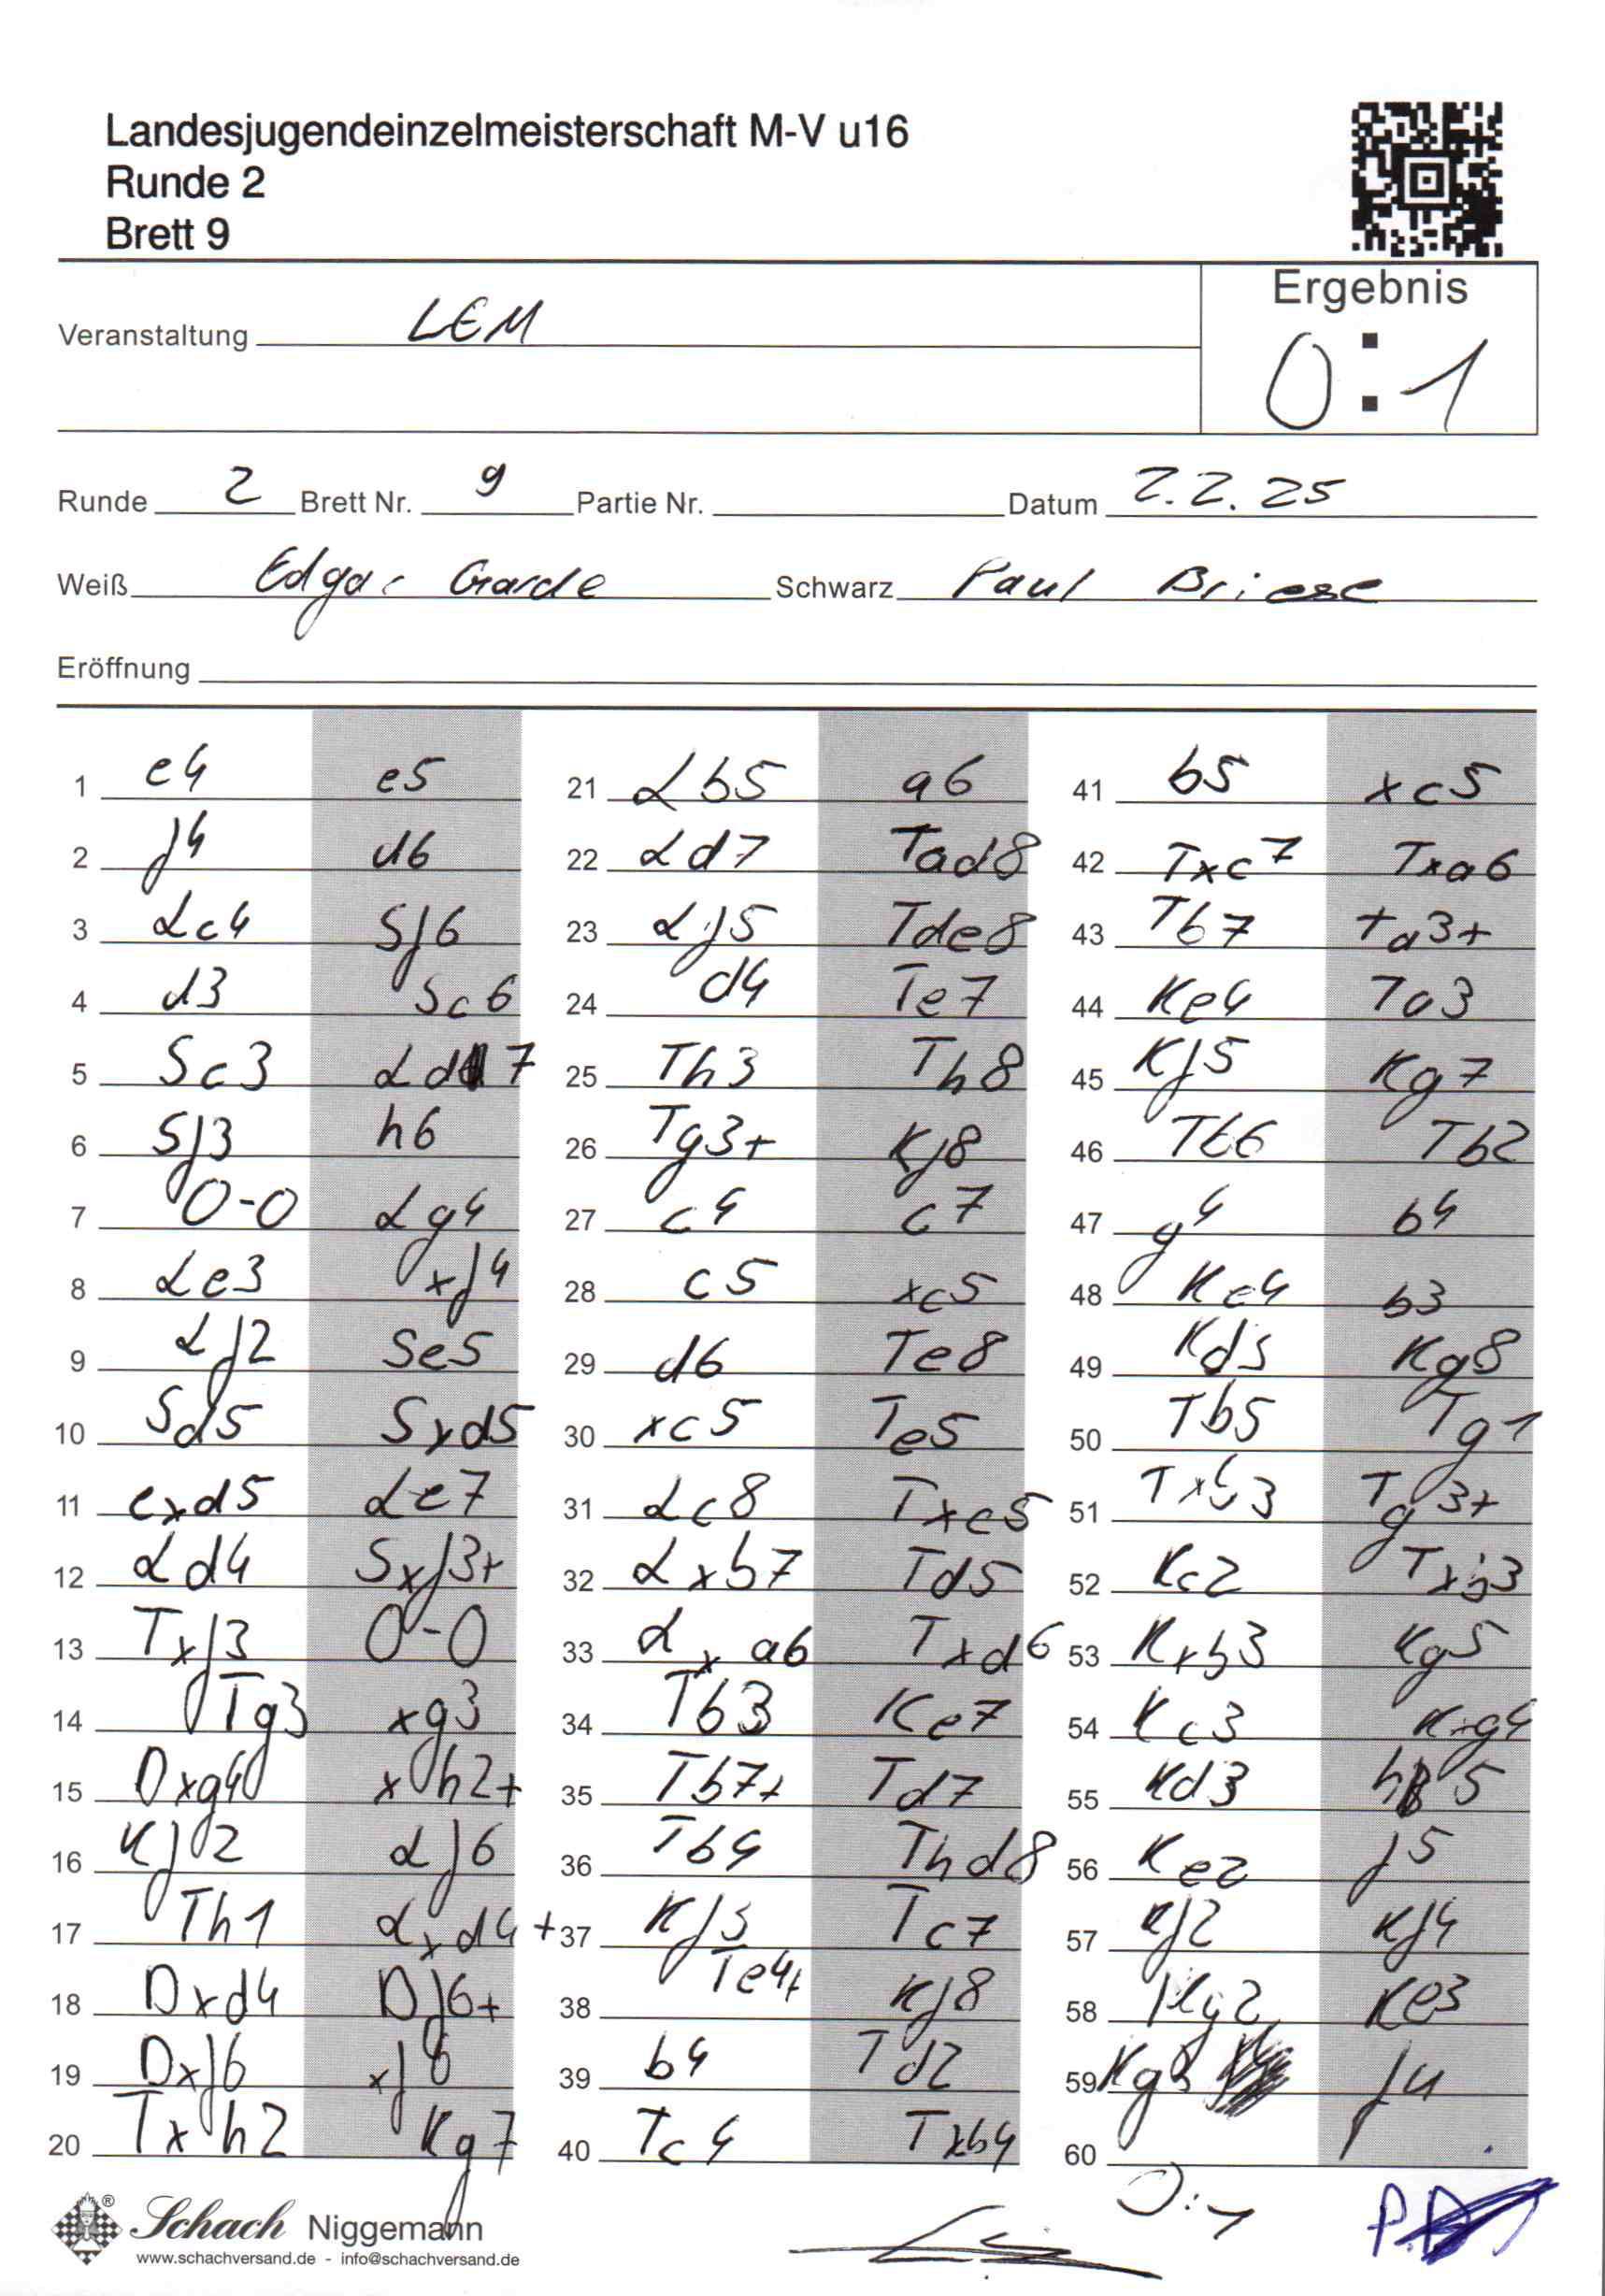 Landesjugendeinzelmeisterschaft M-V u16
Runde 2
Brett 9
Ergebnis
Veranstaltung LEM
0:1
Runde 2 Brett Nr. 9 Partie Nr. Datum 2.2.25
Weiß Edgar Garde Schwarz Paul Briese
Eröffnung
1 e4 e5 21 Lb5 a6 41 b5 xc5
2 f4 d6 22 Ld7 Tad8 42 Txc7 Txa6
3 Lc4 Sf6 23 Lf5 Tde8 43 Tb7 Ta3+
4 d3 Sc6 24 d4 Te7 44 Ke4 Ta3
5 Sc3 Ld7 25 Th3 Th8 45 Kf5 Kg7
6 Sf3 h6 26 Tg3+ Kf8 46 Tb6 Tb2
7 0-0 Lg4 27 c4 c7 47 g4 b4
8 Le3 xf4 28 c5 xc5 48 Ke4 b3
9 Lf2 Se5 29 d6 Te8 49 Kd3 Kg8
10 Sd5 Sxd5 30 xc5 Te5 50 Tb5 Tg1
11 exd5 Le7 31 Lc8 Txc5 51 Txb3 Tg3+
12 Ld4 Sxf3+ 32 Lxb7 Td5 52 Kc2 Txb3
13 Txf3 0-0 33 Lxa6 Txd6 53 Kxb3 Kg5
14 Tg3 xg3 34 Tb3 Ke7 54 Kc3 Kxg4
15 Dxg4 xh2+ 35 Tb7+ Td7 55 Kd3 h5
16 Kf2 Lf6 36 Tb4 Thd8 56 Ke2 f5
17 Th1 Lxd4+ 37 Kf3 Tc7 57 Kf2 Kf4
18 Dxd4 Df6+ 38 Te4+ Kf8 58 Kg2 Ke3
19 Dxf6 xf6 39 b4 Td2 59 Kg3 f4
20 Txh2 Kg7 40 Tc4 Txb4 60
0:1
® Schach Niggemann
www.schachversand.de - info@schachversand.de